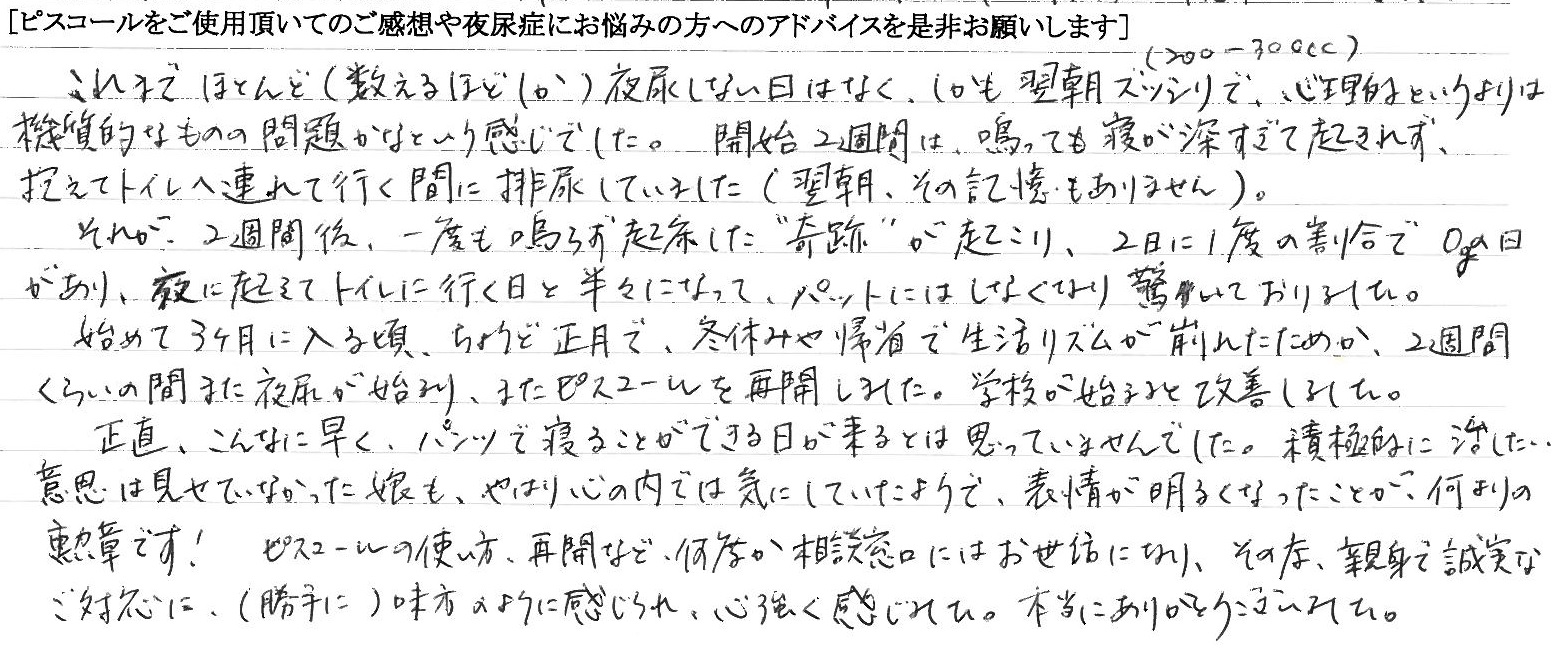 [ピスコールをご使用頂いてのご感想や夜尿症にお悩みの方へのアドバイスを是非お願いします]
(200-300cc)
これまでほとんど(数えるほどしか)夜尿しない日はなく、しかも翌朝ズッシリで、心理的というよりは
機質的なものの問題かなという感じでした。 開始2週間は、鳴っても寝が深すぎて起きれず、
抱えてトイレへ連れて行く間に排尿していました(翌朝、その記憶もありません)。
それが、2週間後、一度も鳴らず起床した"奇跡"が起こり、2日に1度の割合で0gの日
があり、夜に起きてトイレに行く日と半々になって、パットにはしなくなり驚いておりました。
始めて3ヶ月に入る頃、ちょうど正月で、冬休みや帰省で生活リズムが崩れたためか、2週間
くらいの間また夜尿が始まり、またピスコールを再開しました。学校が始まると改善しました。
正直、こんなに早く、パンツで寝ることができる日が来るとは思っていませんでした。積極的に治したい
意思は見せていなかった娘も、やはり心の内では気にしていたようで、表情が明るくなったことが、何よりの
勲章です! ピスコールの使い方、再開など、何度か相談窓口にはお世話になり、その度、親身で誠実な
ご対応に、(勝手に)味方のように感じられ、心強く感じました。本当にありがとうございました。